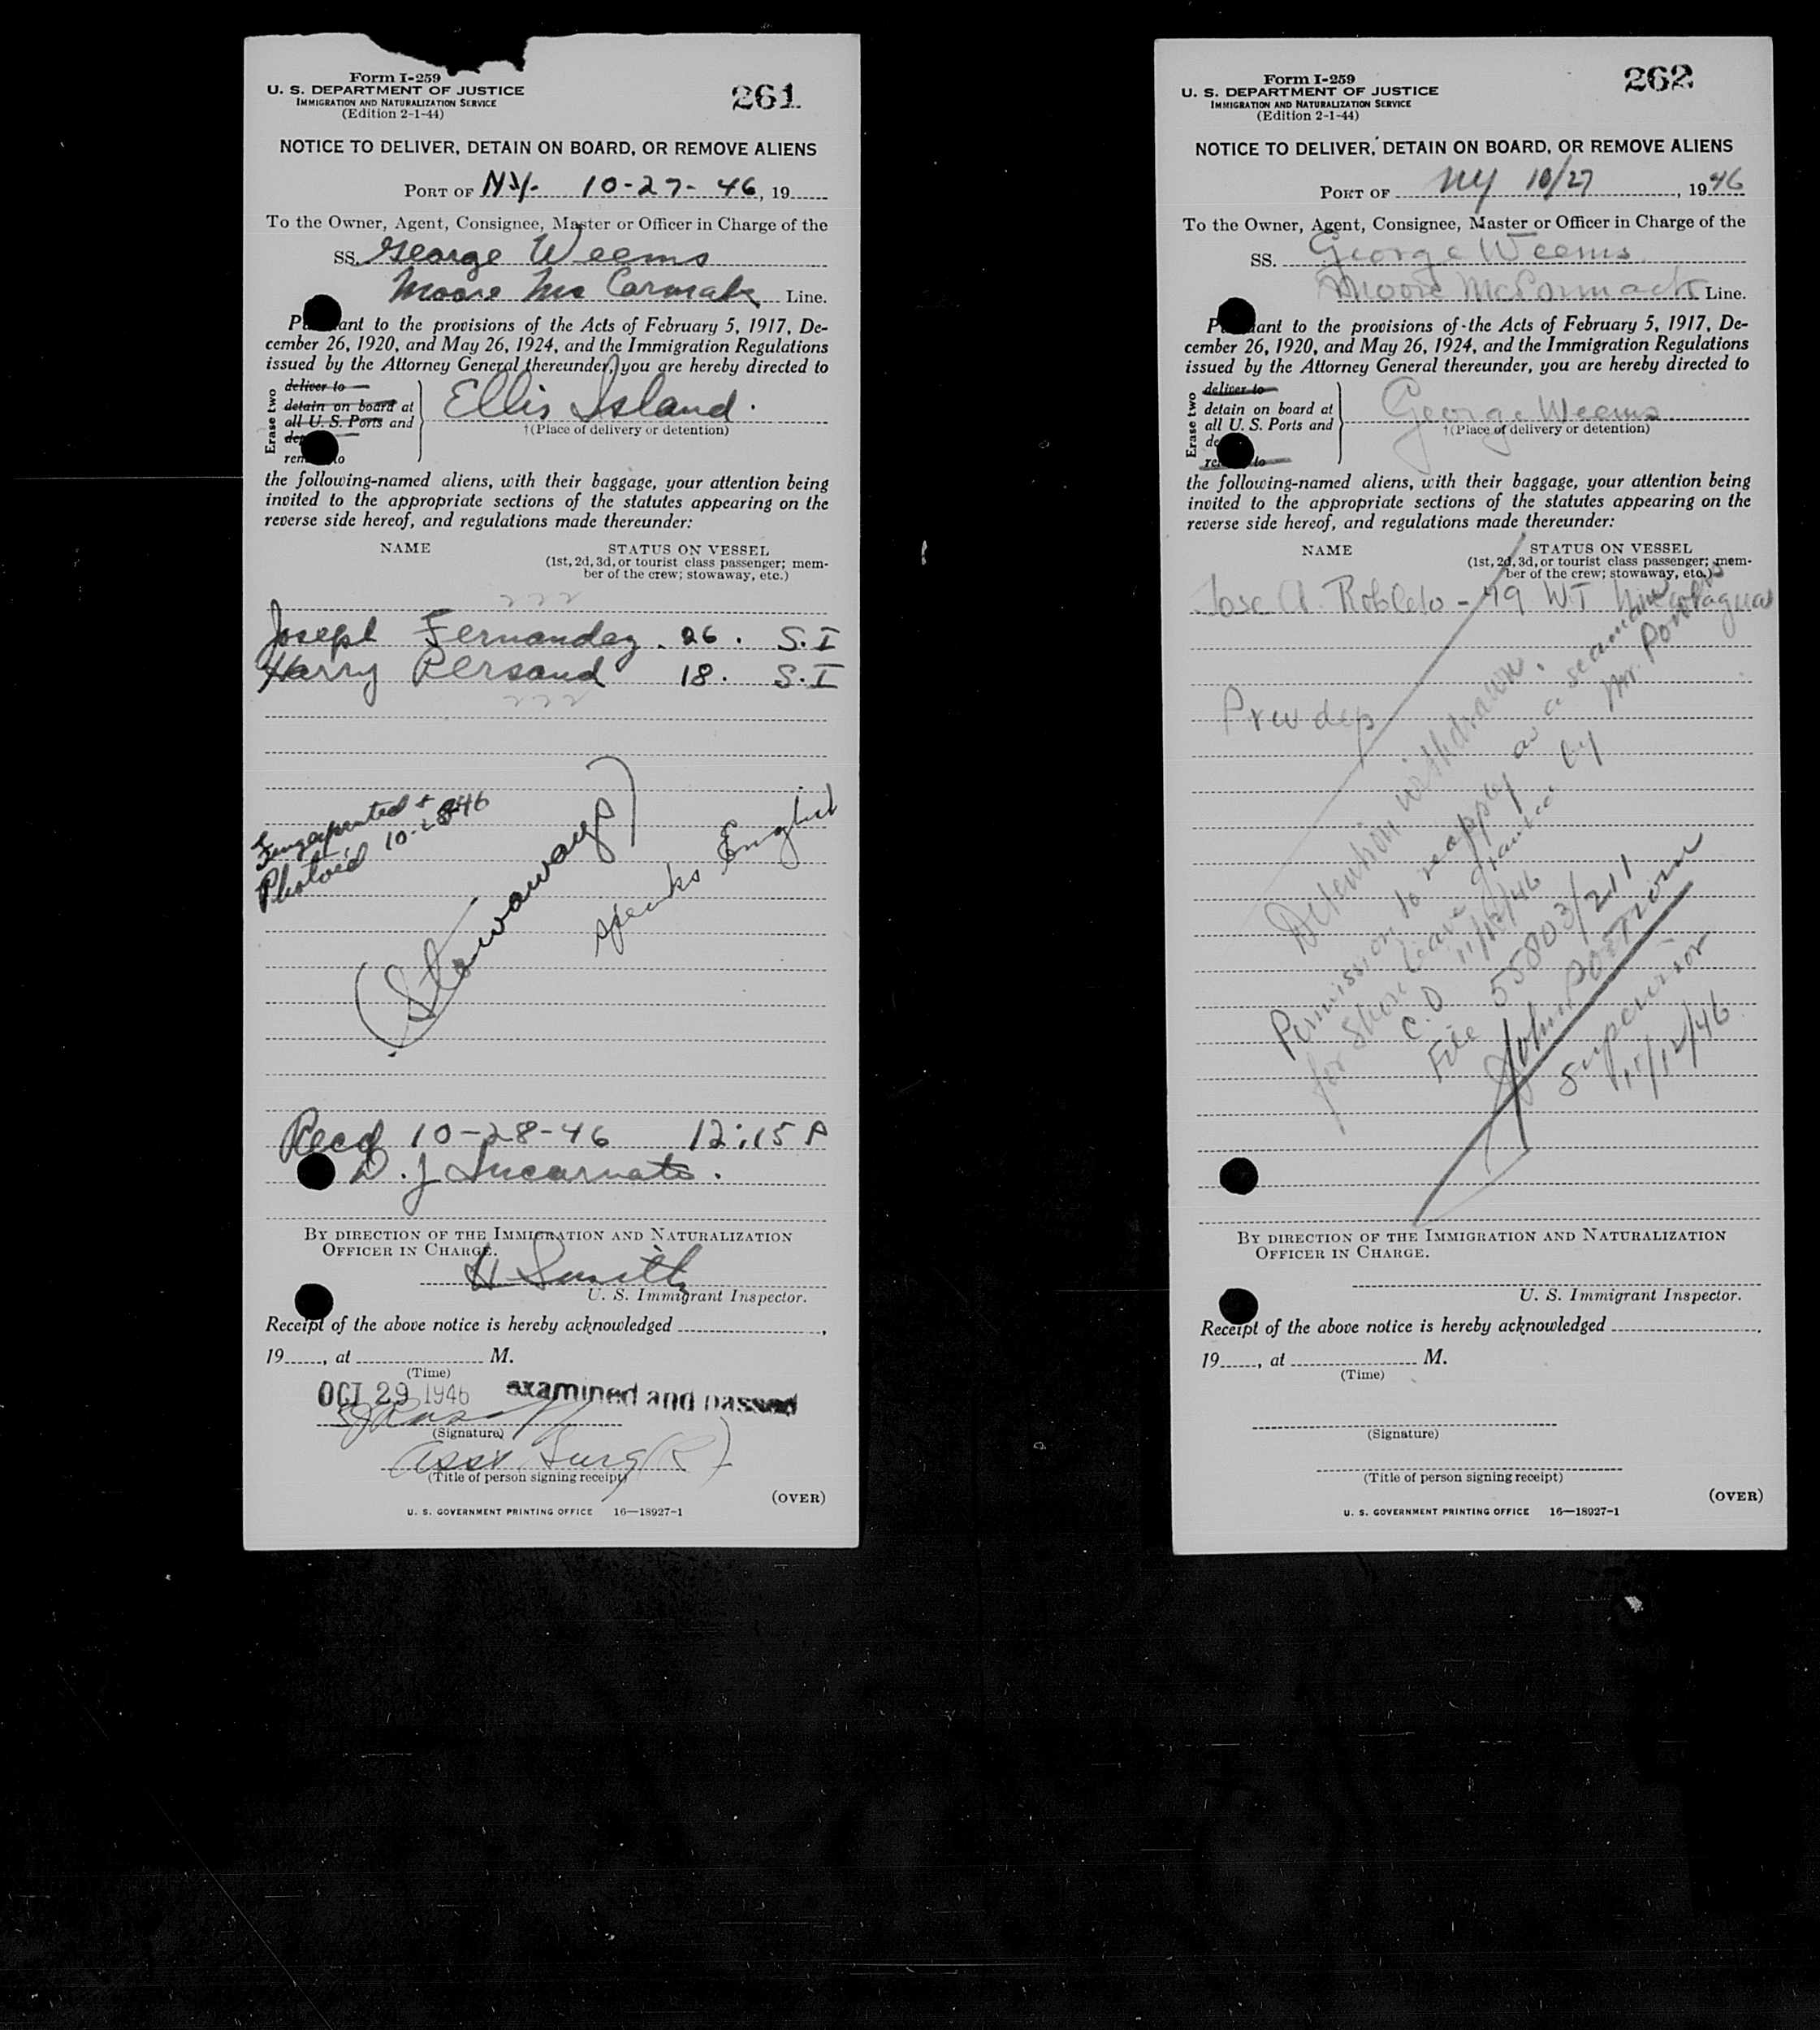 Form I-259
U. S. DEPARTMENT OF JUSTICE
IMMIGRATION AND NATURALIZATION SERVICE
(Edition 2-1-44)
261
NOTICE TO DELIVER, DETAIN ON BOARD, OR REMOVE ALIENS
PORT OF N.Y. 10-27-46, 19
To the Owner, Agent, Consignee, Master or Officer in Charge of the
SS. George Weems
Moore Mc Cormak Line.
P ant to the provisions of the Acts of February 5, 1917, De-
cember 26, 1920, and May 26, 1924, and the Immigration Regulations
issued by the Attorney General thereunder, you are hereby directed to
Erase two
deliver to
detain on board at
all U. S. Ports and
de
rem to
Ellis Island.
†(Place of delivery or detention)
the following-named aliens, with their baggage, your attention being
invited to the appropriate sections of the statutes appearing on the
reverse side hereof, and regulations made thereunder:
NAME
STATUS ON VESSEL
(1st, 2d, 3d, or tourist class passenger; mem-
ber of the crew; stowaway, etc.)
Joseph Fernandez. 26. S.I
Harry Persaud 18. S.I
Fingerprinted +
Photo'd 10-28-46
(Stowaways)
speaks English
Recd 10-28-46 12:15 P
D. J Incarnato.
BY DIRECTION OF THE IMMIGRATION AND NATURALIZATION
OFFICER IN CHARGE.
H Smith
U. S. Immigrant Inspector.
Receipt of the above notice is hereby acknowledged ,
19 , at M.
(Time)
OCT 29 1946 examined and passed
(Signature)
Asst Surg (R)
(Title of person signing receipt)
(OVER)
U. S. GOVERNMENT PRINTING OFFICE 16—18927-1
Form I-259
U. S. DEPARTMENT OF JUSTICE
IMMIGRATION AND NATURALIZATION SERVICE
(Edition 2-1-44)
262
NOTICE TO DELIVER, DETAIN ON BOARD, OR REMOVE ALIENS
PORT OF NY 10/27, 1946
To the Owner, Agent, Consignee, Master or Officer in Charge of the
SS. George Weems
Moore McCormack Line.
P ant to the provisions of the Acts of February 5, 1917, De-
cember 26, 1920, and May 26, 1924, and the Immigration Regulations
issued by the Attorney General thereunder, you are hereby directed to
Erase two
deliver to
detain on board at
all U. S. Ports and
de
re to
George Weems
†(Place of delivery or detention)
the following-named aliens, with their baggage, your attention being
invited to the appropriate sections of the statutes appearing on the
reverse side hereof, and regulations made thereunder:
NAME
STATUS ON VESSEL
(1st, 2d, 3d, or tourist class passenger; mem-
ber of the crew; stowaway, etc.)
Jose A. Robleto - 49 WT Nicaragua
Prev dep
Detention withdrawn.
Permission to reapply as a seaman
for shore leave granted by Mr.
C.O 11/12/46
File 55803/211
John
Supervisor
11/12/46
BY DIRECTION OF THE IMMIGRATION AND NATURALIZATION
OFFICER IN CHARGE.
U. S. Immigrant Inspector.
Receipt of the above notice is hereby acknowledged ,
19 , at M.
(Time)
(Signature)
(Title of person signing receipt)
(OVER)
U. S. GOVERNMENT PRINTING OFFICE 16—18927-1